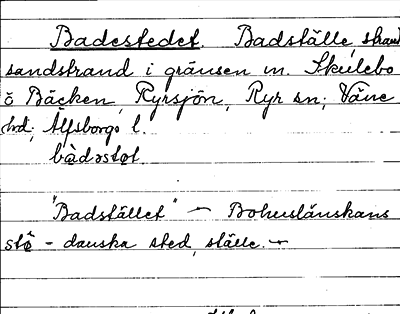 Badestedet. Badställe, strand
sandstrand i gränsen m. Skulebo
ö Bäcken, Ryrsjön, Ryr sn; Väne
hd; Älfsborgs l.
bàdəstət.
"Badstället" – Bohuslänskans
stê - danska sted, ställe. –